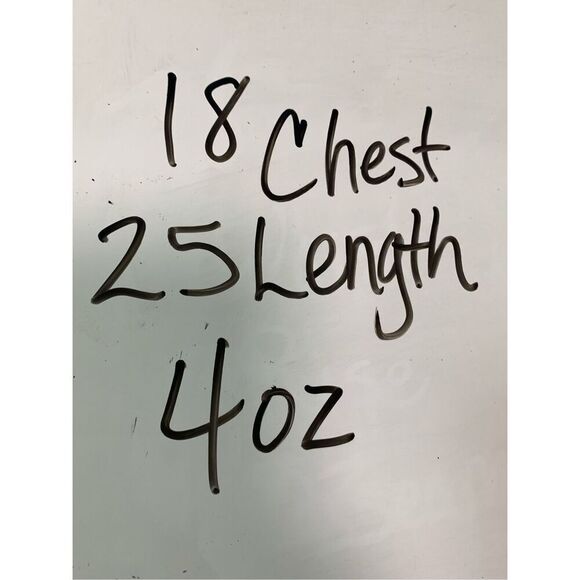 18 Chest
25 Length
4 oz